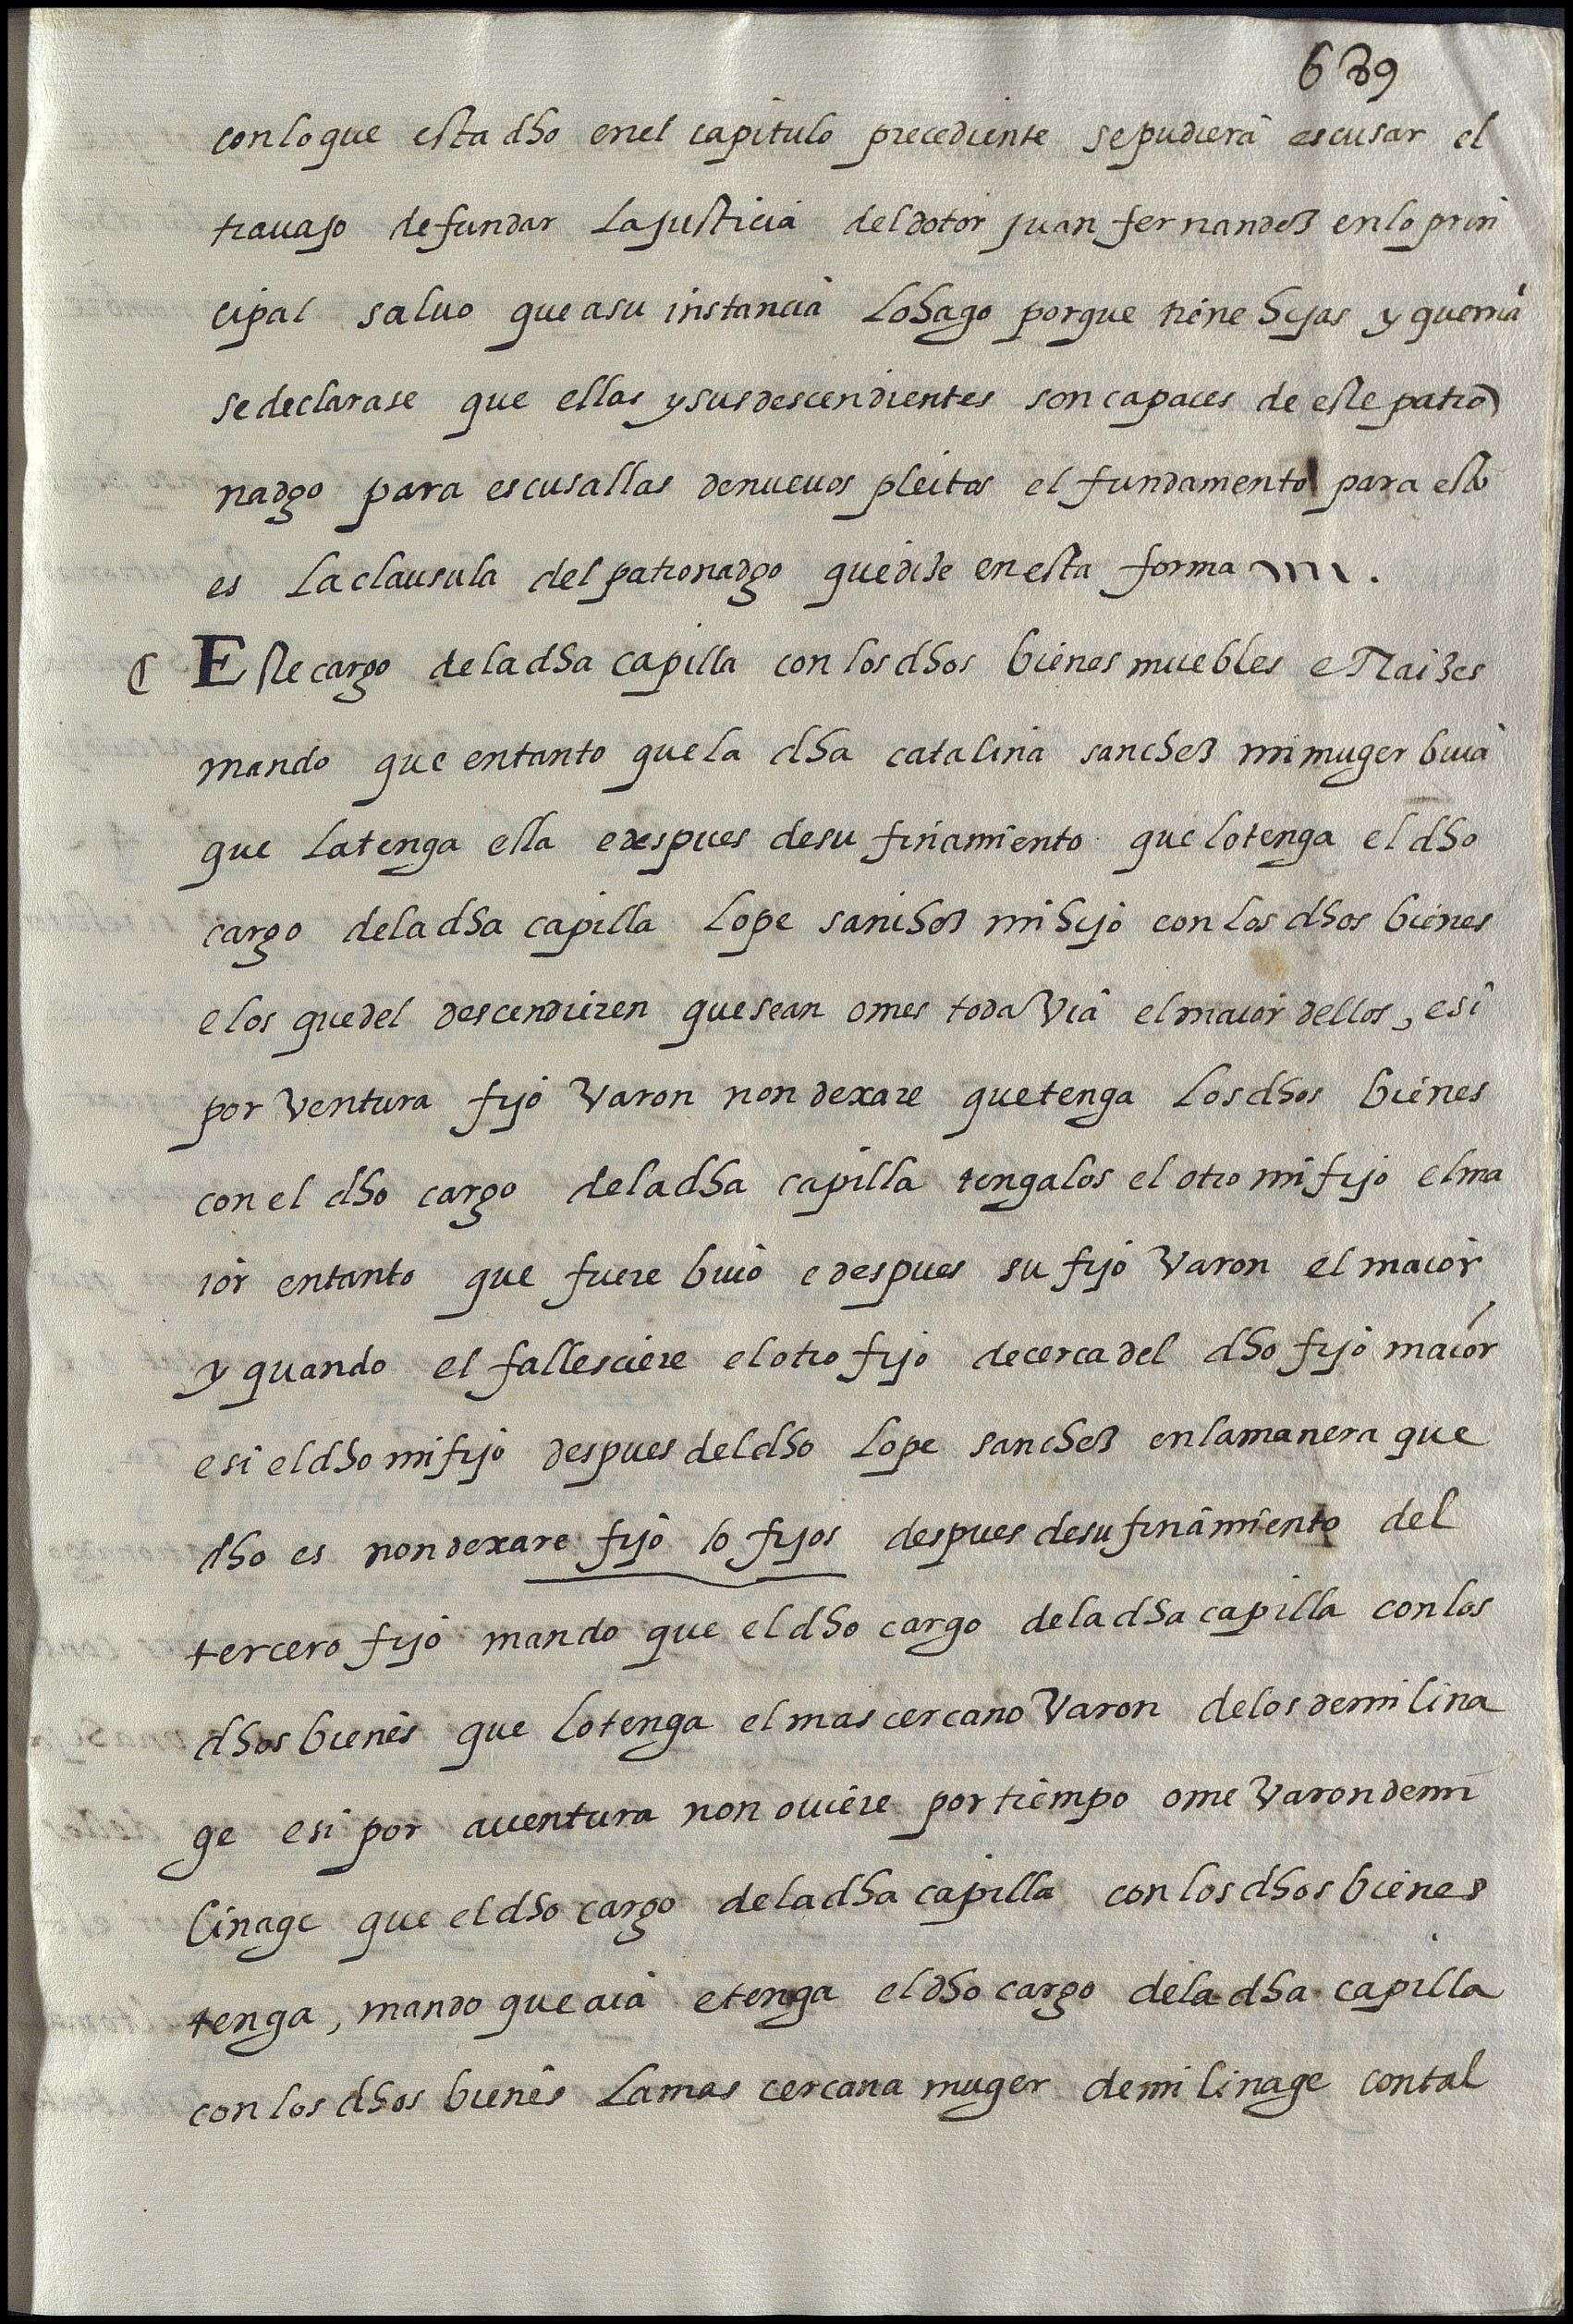 639
con lo que esta dho en el capitulo precediente se pudiera escusar el
travajo de fundar La justicia del dotor juan fernandez en lo prin
cipal salvo que a su instancia Lo hago porque tiene hijas y querria
se declarase que ellas y sus descendientes son capaces de este patro
nadgo para escusallas de nuevos pleitos el fundamento para esto
es La clausula del patronadgo que dize en esta forma
Este cargo de la dha capilla con los dhos bienes muebles e Raizes
mando que entanto que la dha catalina sanchez mi muger biua
que La tenga ella e despues de su finamiento que lo tenga el dho
cargo de la dha capilla Lope sanchez mi hijo con los dhos bienes
e los que del descendieren que sean omes toda Via el maior dellos, e si
por Ventura fijo Varon non dexare que tenga Los dhos bienes
con el dho cargo de la dha capilla tengalos el otro mi fijo el ma
ior entanto que fuere biuo e despues su fijo Varon el maior
y quando el fallesciere el otro fijo de cerca del dho fijo maior
e si el dho mi fijo despues del dho Lope sanchez en la manera que
dho es non dexare fijo o fijos despues de su finamiento del
tercero fijo mando que el dho cargo de la dha capilla con los
dhos bienes que Lo tenga el mas cercano Varon de los de mi lina
ge e si por auentura non ouiere por tiempo ome Varon de mi
linage que el dho cargo de la dha capilla con los dhos bienes
tenga, mando que aia e tenga el dho cargo de la dha capilla
con los dhos bienes La mas cercana muger de mi linage con tal